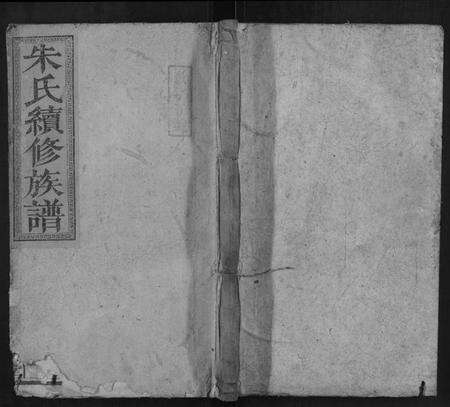 朱氏續修族譜